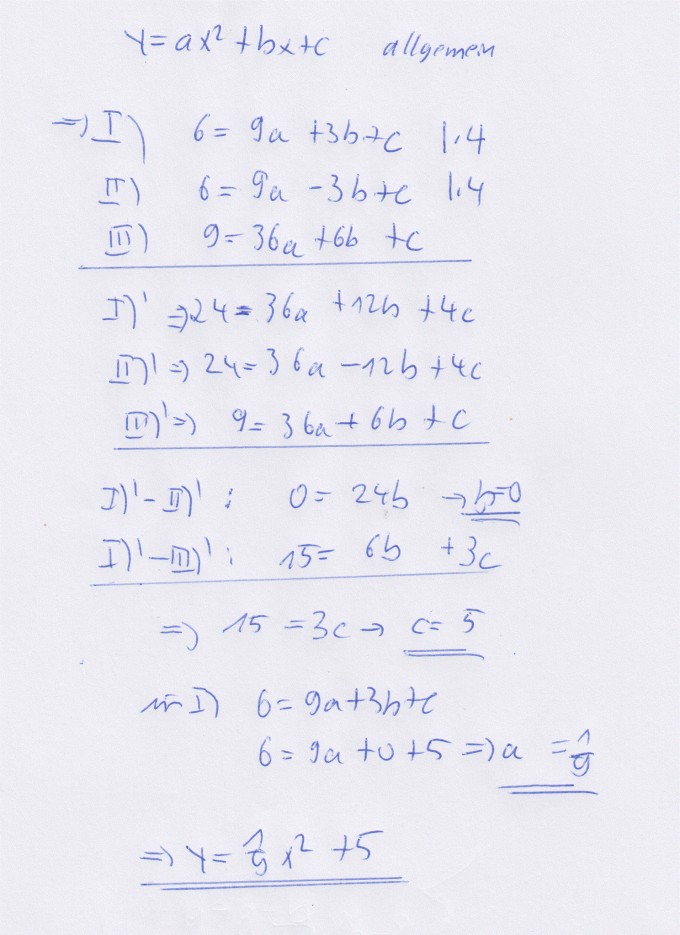 y = ax² + bx + c allgemein
=> I) 6 = 9a + 3b + c |·4
II) 6 = 9a - 3b + c |·4
III) 9 = 36a + 6b + c
I)' => 24 = 36a + 12b + 4c
II)' => 24 = 36a - 12b + 4c
III)' => 9 = 36a + 6b + c
I)' - II)' : 0 = 24b → b=0
I)' - III)' : 15 = 6b + 3c
=> 15 = 3c → c = 5
in I) 6 = 9a + 3b + c
6 = 9a + 0 + 5 => a = 1/9
=> y = 1/9 x² + 5